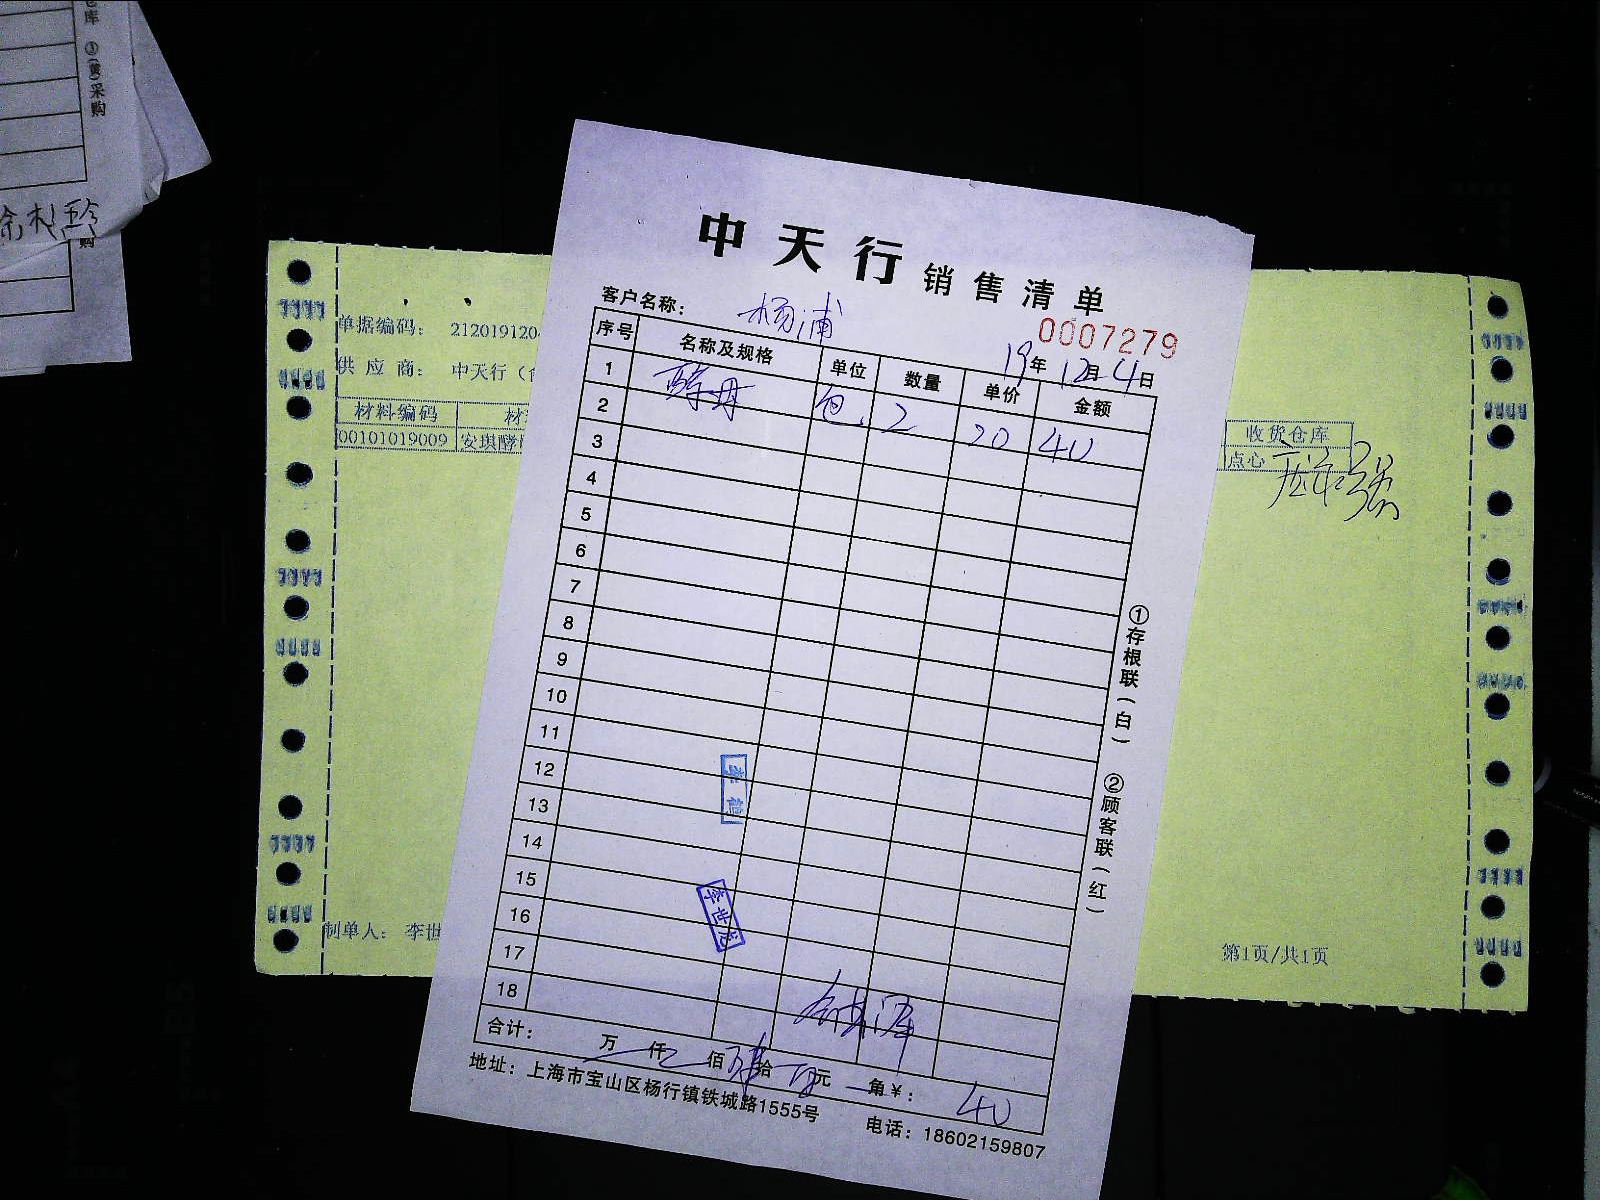 库 ③(黄)采购
购
单据编码: 212019120
供 应 商: 中天行(
材料编码 材
00101019009 安琪酵
收货仓库
点心
制单人: 李世
第1页/共1页
中天行 销售清单
客户名称: 杨浦
0007279
19年 12月 4日
序号 名称及规格 单位 数量 单价 金额
1 酵母 包 2 20 40
2
3
4
5
6
7
8
9
10
11
12
13
14
15
16
17
18
李世龙
合计: 万 仟 佰 拾 元 角¥: 40
地址: 上海市宝山区杨行镇铁城路1555号 电话: 18602159807
①存根联(白) ②顾客联(红)